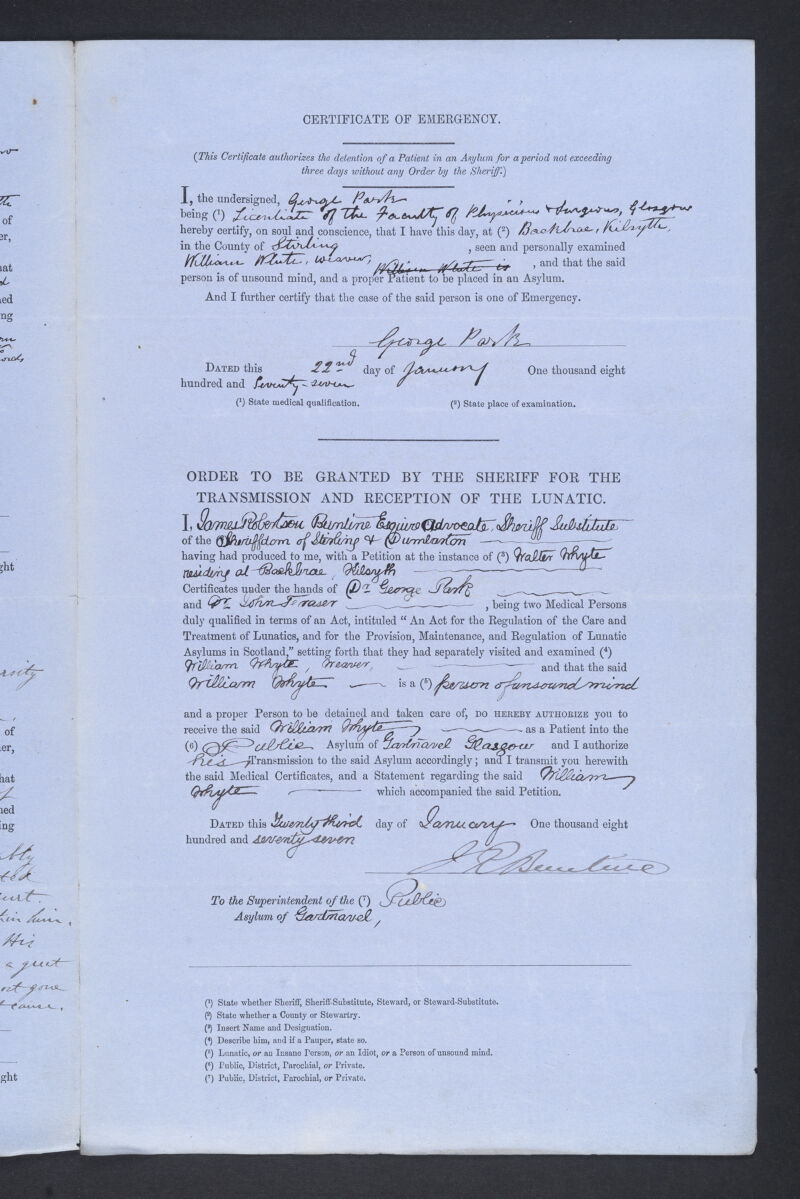 CERTIFICATE OF EMERGENCY.
(This Certificate authorizes the detention of a Patient in an Asylum for a period not exceeding
three days without any Order by the Sheriff.)
I, the undersigned, George Park
being (1) Licentiate of the Faculty of Physicians & Surgeons, Glasgow
hereby certify, on soul and conscience, that I have this day, at (2) Backbrae, Kilsyth,
in the County of Stirling , seen and personally examined
William White, weaver, William White is , and that the said
person is of unsound mind, and a proper Patient to be placed in an Asylum.
And I further certify that the case of the said person is one of Emergency.
George Park
DATED this 22nd day of January One thousand eight
hundred and Seventy-seven
(1) State medical qualification. (2) State place of examination.
ORDER TO BE GRANTED BY THE SHERIFF FOR THE
TRANSMISSION AND RECEPTION OF THE LUNATIC.
I, James Robertson Buntine Esquire Advocate, Sheriff Substitute
of the Sheriffdom of Stirling & Dumbarton
having had produced to me, with a Petition at the instance of (3) Walter Whyte
residing at Backbrae, Kilsyth
Certificates under the hands of Dr George Park
and Dr John Fraser , being two Medical Persons
duly qualified in terms of an Act, intituled “ An Act for the Regulation of the Care and
Treatment of Lunatics, and for the Provision, Maintenance, and Regulation of Lunatic
Asylums in Scotland,” setting forth that they had separately visited and examined (4)
William Whyte, Weaver, and that the said
William Whyte is a (5) person of unsound mind
and a proper Person to be detained and taken care of, DO HEREBY AUTHORIZE you to
receive the said William Whyte, as a Patient into the
(6) Public Asylum of Gartnavel Glasgow and I authorize
his Transmission to the said Asylum accordingly; and I transmit you herewith
the said Medical Certificates, and a Statement regarding the said William
Whyte which accompanied the said Petition.
DATED this Twenty third day of January One thousand eight
hundred and seventy seven
J R Buntine
To the Superintendent of the (7) Public
Asylum of Gartnavel,
(1) State whether Sheriff, Sheriff-Substitute, Steward, or Steward-Substitute.
(2) State whether a County or Stewartry.
(3) Insert Name and Designation.
(4) Describe him, and if a Pauper, state so.
(5) Lunatic, or an Insane Person, or an Idiot, or a Person of unsound mind.
(6) Public, District, Parochial, or Private.
(7) Public, District, Parochial, or Private.
of
hat
ned
ing
ght
of
hat
ned
ing
His
a great
ght